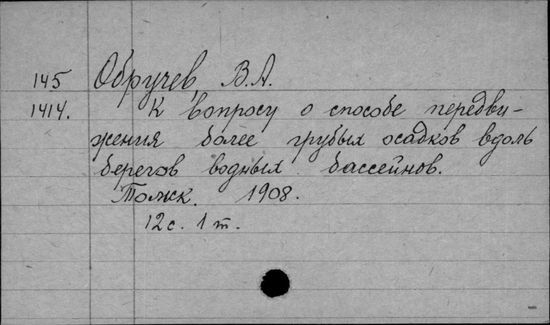 145 Обручев, В.А.
1414. К вопросу о способе передви-
жения более грубых осадков вдоль
берегов водных бассейнов.
Томск. 1908.
12 с. 1 т.